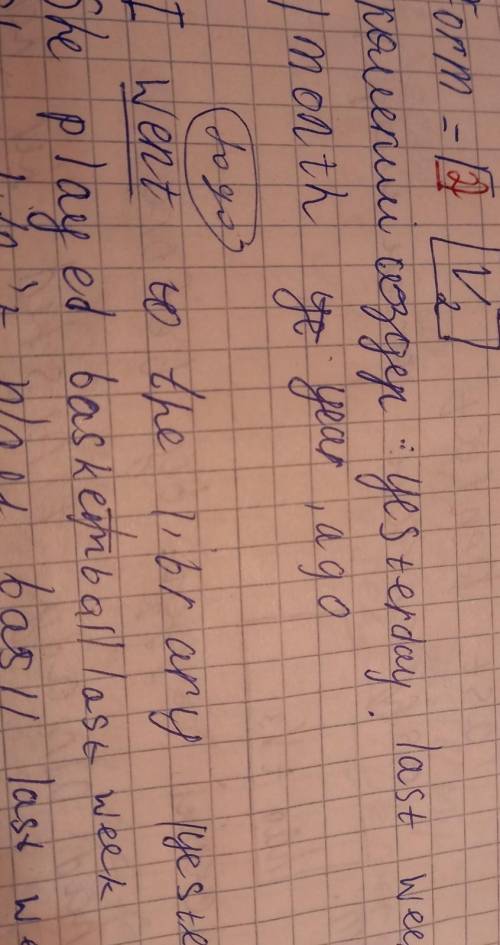 orm = 2 [V2]
көмекші сөздер: yesterday. last wee
/ month year, ago
to go
I went to the library yeste
She played basketball last week
last w